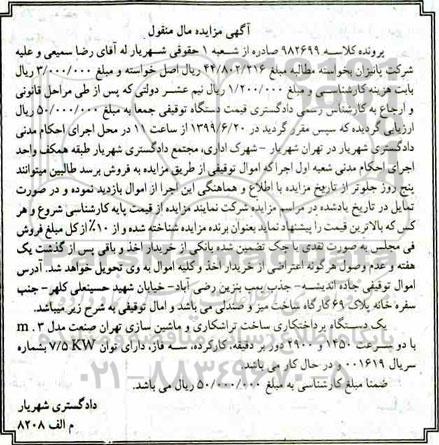 آگهی مزایده مال منقول
پرونده کلاسه ۹۸۲۶۹۹ صادره از شعبه ۱ حقوقی شهریار له آقای رضا سمیعی و علیه
شرکت یانیژان بخواسته مطالبه مبلغ ۴۴/۸۰۲/۲۱۶ ریال اصل خواسته و مبلغ ۳/۰۰۰/۰۰۰ ریال
بابت هزینه کارشناسی و مبلغ ۱/۲۰۰/۰۰۰ ریال نیم عشر دولتی که پس از طی مراحل قانونی
و ارجاع به کارشناس رسمی دادگستری قیمت دستگاه توقیفی جمعا به مبلغ ۵۰/۰۰۰/۰۰۰ ریال
ارزیابی گردیده که سپس مقرر گردید در ۱۳۹۹/۶/۲۰ از ساعت ۱۱ در محل اجرای احکام مدنی
دادگستری شهریار در تهران شهریار - شهرک اداری، مجتمع دادگستری شهریار طبقه همکف واحد
اجرای احکام مدنی شعبه اول اجرا که اموال توقیفی از طریق مزایده به فروش برسد طالبین میتوانند
پنج روز جلوتر از تاریخ مزایده با اطلاع و هماهنگی این اجرا از اموال بازدید نموده و در صورت
تمایل در تاریخ یادشده در مراسم مزایده شرکت نمایند مزایده از قیمت پایه کارشناسی شروع و هر
کس که بالاترین قیمت را پیشنهاد نماید بعنوان برنده مزایده شناخته شده و از ۱۰٪ ازکل مبلغ فروش
فی مجلس به صورت نقدی یا چک تضمین شده بانکی از خریدار اخذ و باقی پس از گذشت یک
هفته و عدم وصول هرگونه اعتراضی از خریدار اخذ و کلیه اموال به وی تحویل خواهد شد. آدرس
اموال توقیفی جاده اندیشه- جنب پمپ بنزین رضی آباد- خیابان شهید حسینعلی کلهر - جنب
سفره خانه پلاک ۶۹ کارگاه ساخت میز و صندلی می باشد و امال توقیفی به شرح زیر میباشد.
یک دستگاه پرداختکاری ساخت تراشکاری و ماشین سازی تهران صنعت مدل m.۳
با دو سرعت ۱۴۵۰ و ۲۹۰۰ دور بر دقیقه، کارکرده، سه فاز، دارای توان ۷/۵ KW بشماره
سریال ۰۰۱۶۱۹ و در حال کار می باشد.
ضمنا مبلغ کارشناسی به مبلغ ۵۰/۰۰۰/۰۰۰ ریال می باشد.
دادگستری شهریار
م الف ۸۲۰۸
ParsNamadData
۰۲۱-۸۸۳۴۹۶۷۰-۵